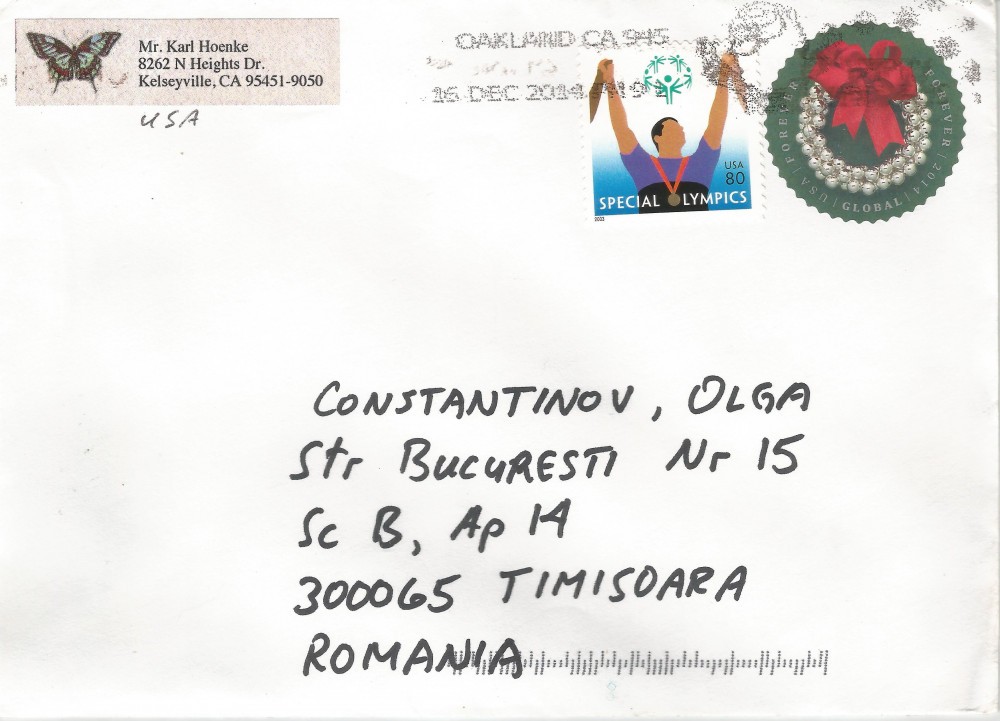 Mr. Karl Hoenke
8262 N Heights Dr.
Kelseyville, CA 95451-9050
USA
OAKLAND CA 945
16 DEC 2014 PM
USA
80
SPECIAL OLYMPICS
2003
USA FOREVER
FOREVER | 2014
GLOBAL
CONSTANTINOV, OLGA
Str BUCURESTI Nr 15
Sc B, Ap 14
300065 TIMISOARA
ROMANIA